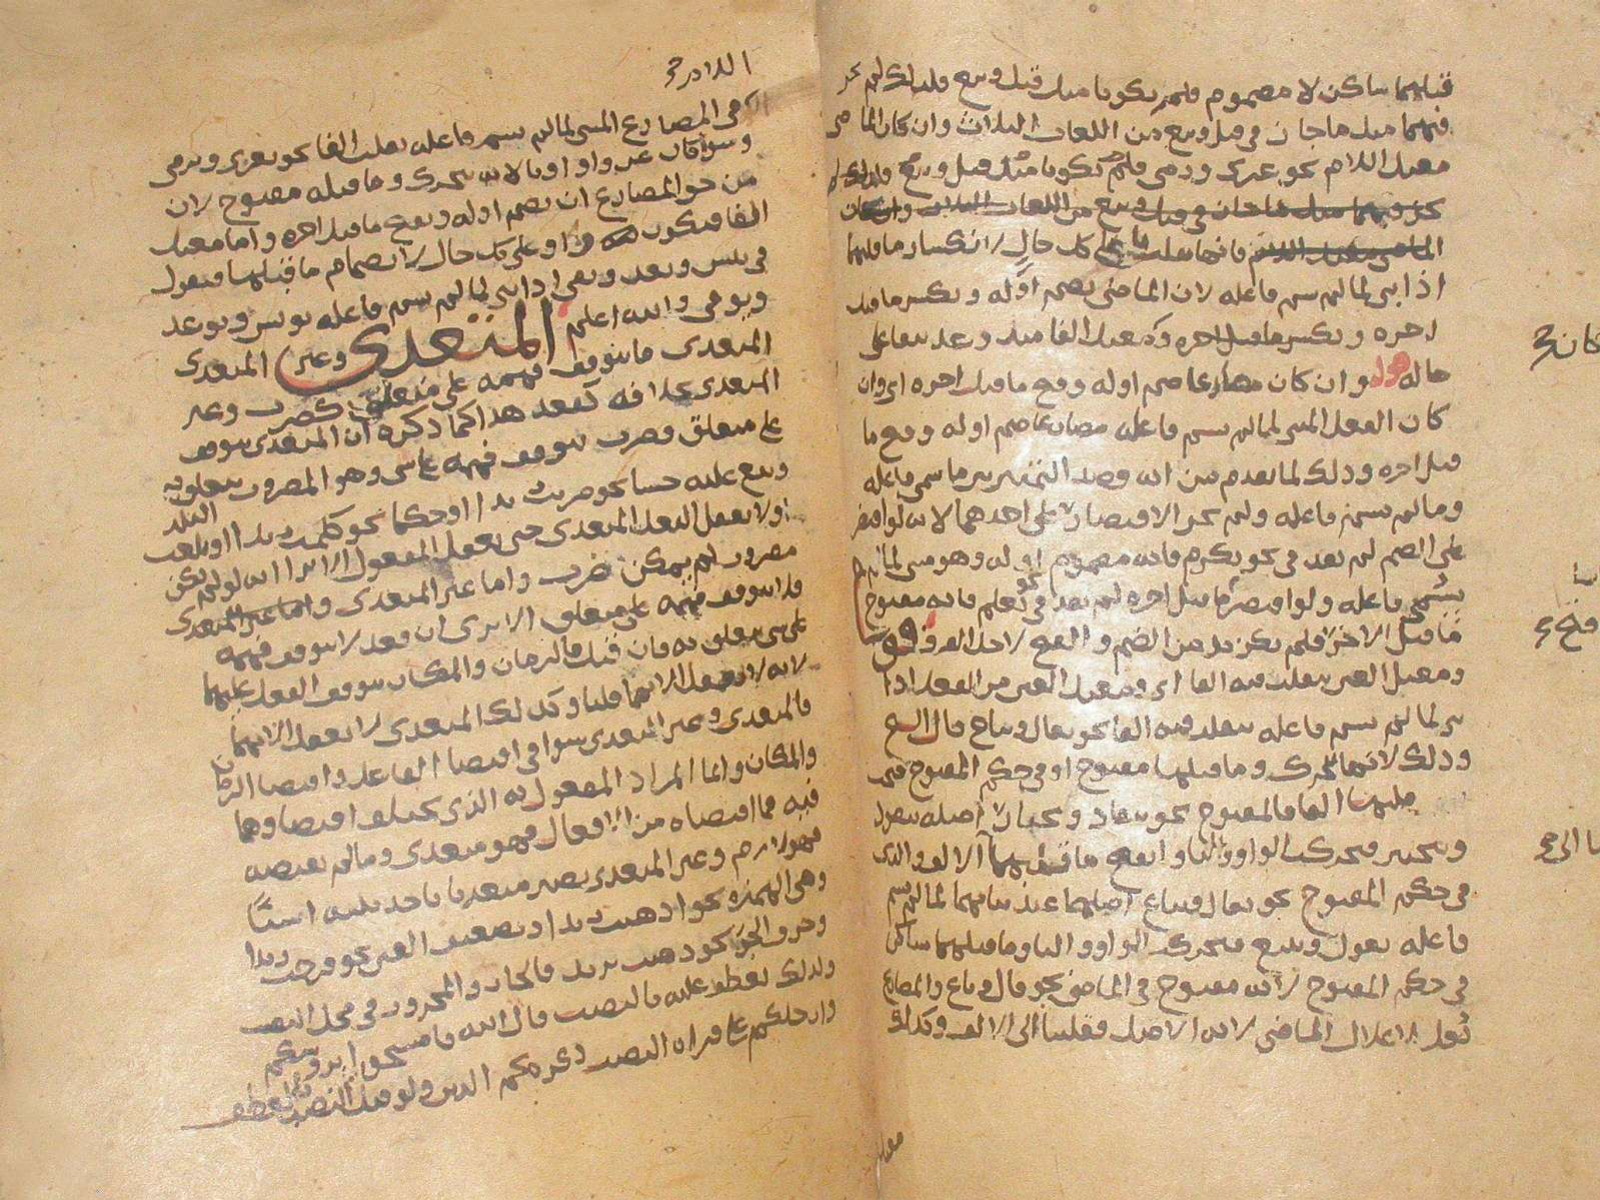 قبلهما ساكن لا مضموم فلم يكونا مثل قيل وبيع فلذلك لم يجز
فيهما مثل ما جاز في قيل وبيع من اللغات الثلاث وان كان الماضي
معتل اللام نحو غزى ورمى فلم يكونا مثل قيل وبيع فلذلك لم
يجز فيهما مثل ما جاز في قيل وبيع من اللغات الثلاث وان كان
الماضي معتل اللام فانها تقلب يا على كل حال لانكسار ما قبلها
اذا بني لما لم يسم فاعله لان الماضي يضم اوله ويكسر ما قبل
اخره ويكسر ما قبل اخره ومعتل الفا مثل وعد يبقا على
حاله قوله وان كان مضارعا ضم اوله وفتح ما قبل اخره اي وان
كان الفعل المبني لما لم يسم فاعله مضارعا ضم اوله وفتح ما
قبل اخره وذلك لما تقدم من انه قصد التمييز بين ما سمي فاعله
وما لم يسم فاعله ولم يجز الاقتصار على احدهما لانه لو اقتصر
على الضم لم يفد في نحو يكرم فانه مضموم اوله وهو مبني لما
يسمى فاعله ولو اقتصر ما قبل اخره لم يفد في نحو تعلم فانه مفتوح
ما قبل الاخر فلم يكن بد من الضم والفتح لاجل الفرق قوله
ومعتل العين ينقلب فيه الفا اي ومعتل العين من الفعل اذا
بني لما لم يسم فاعله ينقلب فيه الفا نحو يقال ويباع قال الشيخ
وذلك لانها تتحرك وما قبلها مفتوح او في حكم المفتوح فيجب
قلبها الفا فالمفتوح نحو ينقاد ويختار اصله ينقود
ويختير فتحركت الواو واليا وانفتح ما قبلهما الالف والذي
في حكم المفتوح نحو يقال ويباع اصلهما عند بنائهما لما لم يسم
فاعله يقول ويبيع فتحركت الواو واليا وما قبلهما ساكن
في حكم المفتوح لانه مفتوح في الماضي نحو قال وباع والمضارع
اعلال الماضي لانه الاصل فقلبتا الى الالف وكذلك
كان
فتح
اللام
في المضارع المبني لما لم يسم فاعله تقلب الفا نحو يغزى ويرمى
وسوا كان عن واو او يا لانه يتحرك وما قبله مفتوح لان
من حق المضارع ان يضم اوله ويفتح ما قبل اخره واما معتل
الفا فيكون واوا على كل حال لانضمام ما قبلها فيقول
في يئس ويعد ويعي اذا بني لما لم يسم فاعله يوئس ويوعد
ويوعى والله اعلم المتعدي وغير المتعدي
المتعدي ما يتوقف فهمه على متعلق كضرب وغير
المتعدي بخلافه كقعد هذا كما ذكره ان المتعدي يتوقف
على متعلق فضرب يتوقف فهمه على شي وهو المضروب يتعلق به
ويقع عليه حسا نحو ضربت زيدا او حكما نحو كلمت زيدا او بلغت البلد
اولا تعقل الفعل المتعدي حتى يعقل المفعول الا ترا انه لو لم يكن
مضروب لم يمكن ضرب واما غير المتعدي واما غير المتعدي
فلا يتوقف فهمه على متعلق الا ترى ان قعد لا يتوقف فهمه
على شي يتعلق به فان قيل فالزمان والمكان يتوقف الفعل عليهما
لانه لا يعقل الا بهما قلنا وكذلك المتعدي لا يعقل الا بهما
فالمتعدي وغير المتعدي سوا في اقتضا الفاعل واقتضا الزمان
والمكان وانما المراد المفعول به الذي يختلف اقتضاوهما
فيه فما اقتضاه من الافعال فهو متعدي وما لم يقتضيه
فهو لازم وغير المتعدي يصير متعديا باحد ثلثة اشيا
وهي الهمزة نحو اذهبت زيدا وتضعيف العين نحو فرحت زيدا
وحرف الجر نحو ذهبت بزيد فالجار والمجرور في محل النصب
ولذلك يعطف عليه بالنصب قال الله فامسحوا بروسكم
وارجلكم على قراة النصب